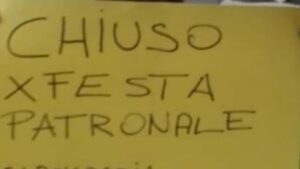 CHIUSO
X FESTA
PATRONALE